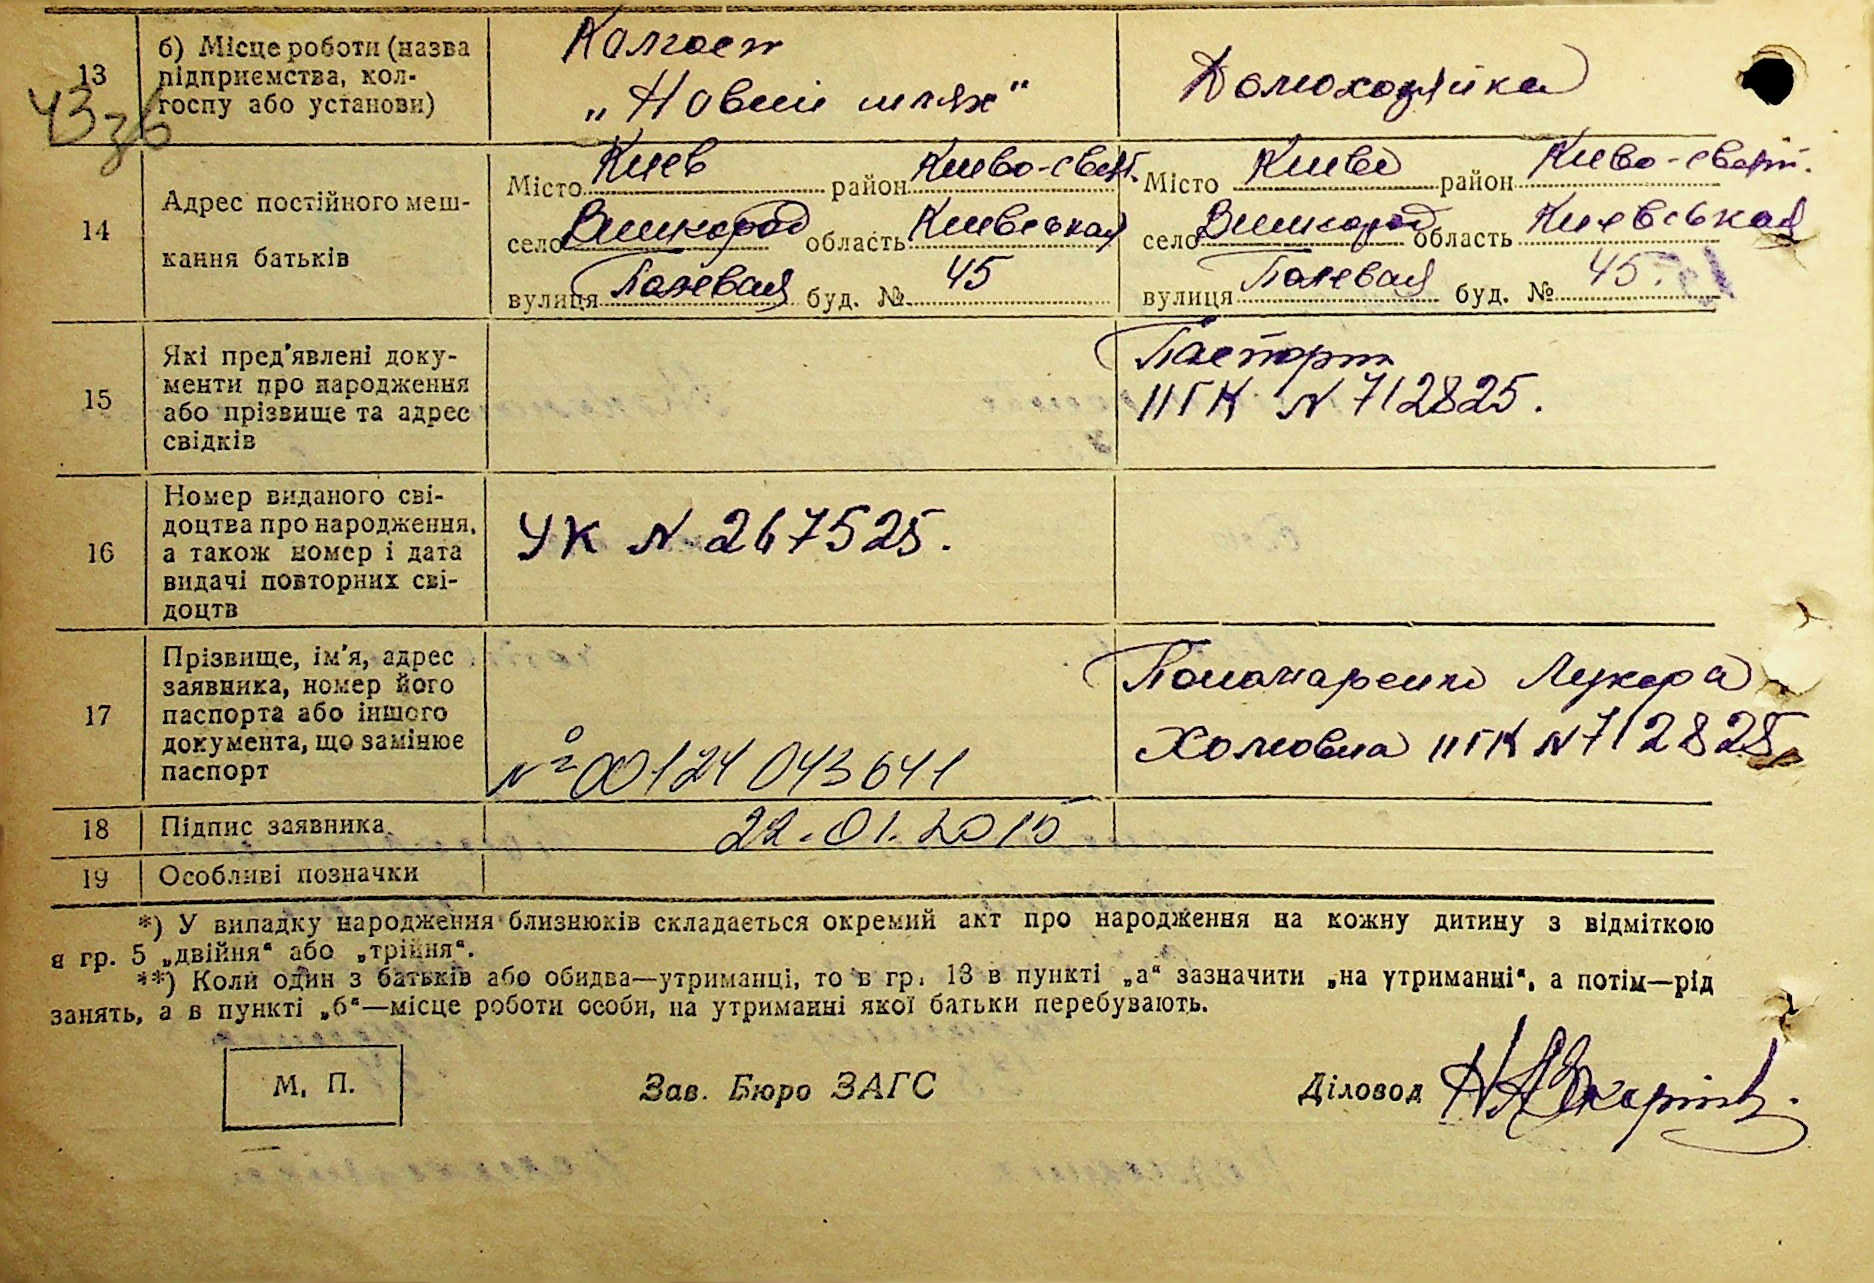 13 б) Місце роботи (назва підприємства, колгоспу або установи)
Колгосп
„Новий шлях“
Домохозяйка
43зб
14 Адрес постійного мешкання батьків
Місто Киев район Киево-свят. Місто Киев район Киево-свят.
село Вишгород область Киевськая село Вишгород область Киевськая
вулиця Полевая буд. № 45 вулиця Полевая буд. № 45
15 Які пред'явлені документи про народження або прізвище та адрес свідків
Паспорт
IIГК N 712825.
16 Номер виданого свідоцтва про народження, а також номер і дата видачі повторних свідоцтв
УК N 267525.
17 Прізвище, ім'я, адрес заявника, номер його паспорта або іншого документа, що замінює паспорт
Пономаренко Лукера
Хомовна IIГК N 712825
№ 00124043641
18 Підпис заявника
22.01.2015
19 Особливі позначки
*) У випадку народження близнюків складається окремий акт про народження на кожну дитину з відміткою
в гр. 5 „двійня“ або „трійня“.
**) Коли один з батьків або обидва—утриманці, то в гр. 13 в пункті „а“ зазначити „на утриманні“, а потім—рід
занять, а в пункті „б“—місце роботи особи, на утриманні якої батьки перебувають.
М. П. Зав. Бюро ЗАГС Діловод